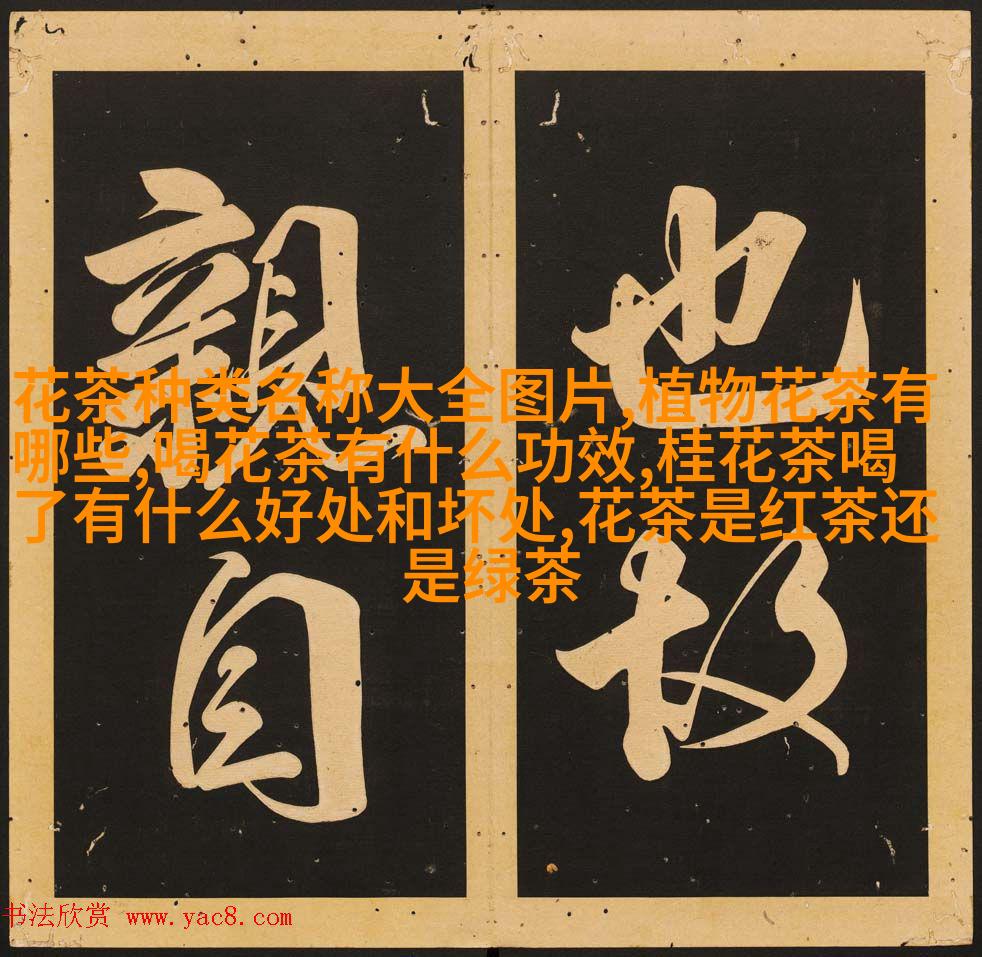 也故
親自
花茶种类名称大全图片,植物花茶有
哪些,喝花茶有什么功效,桂花茶喝
了有什么好处和坏处,花茶是红茶还
是绿茶
书法欣赏 www.yac8.com